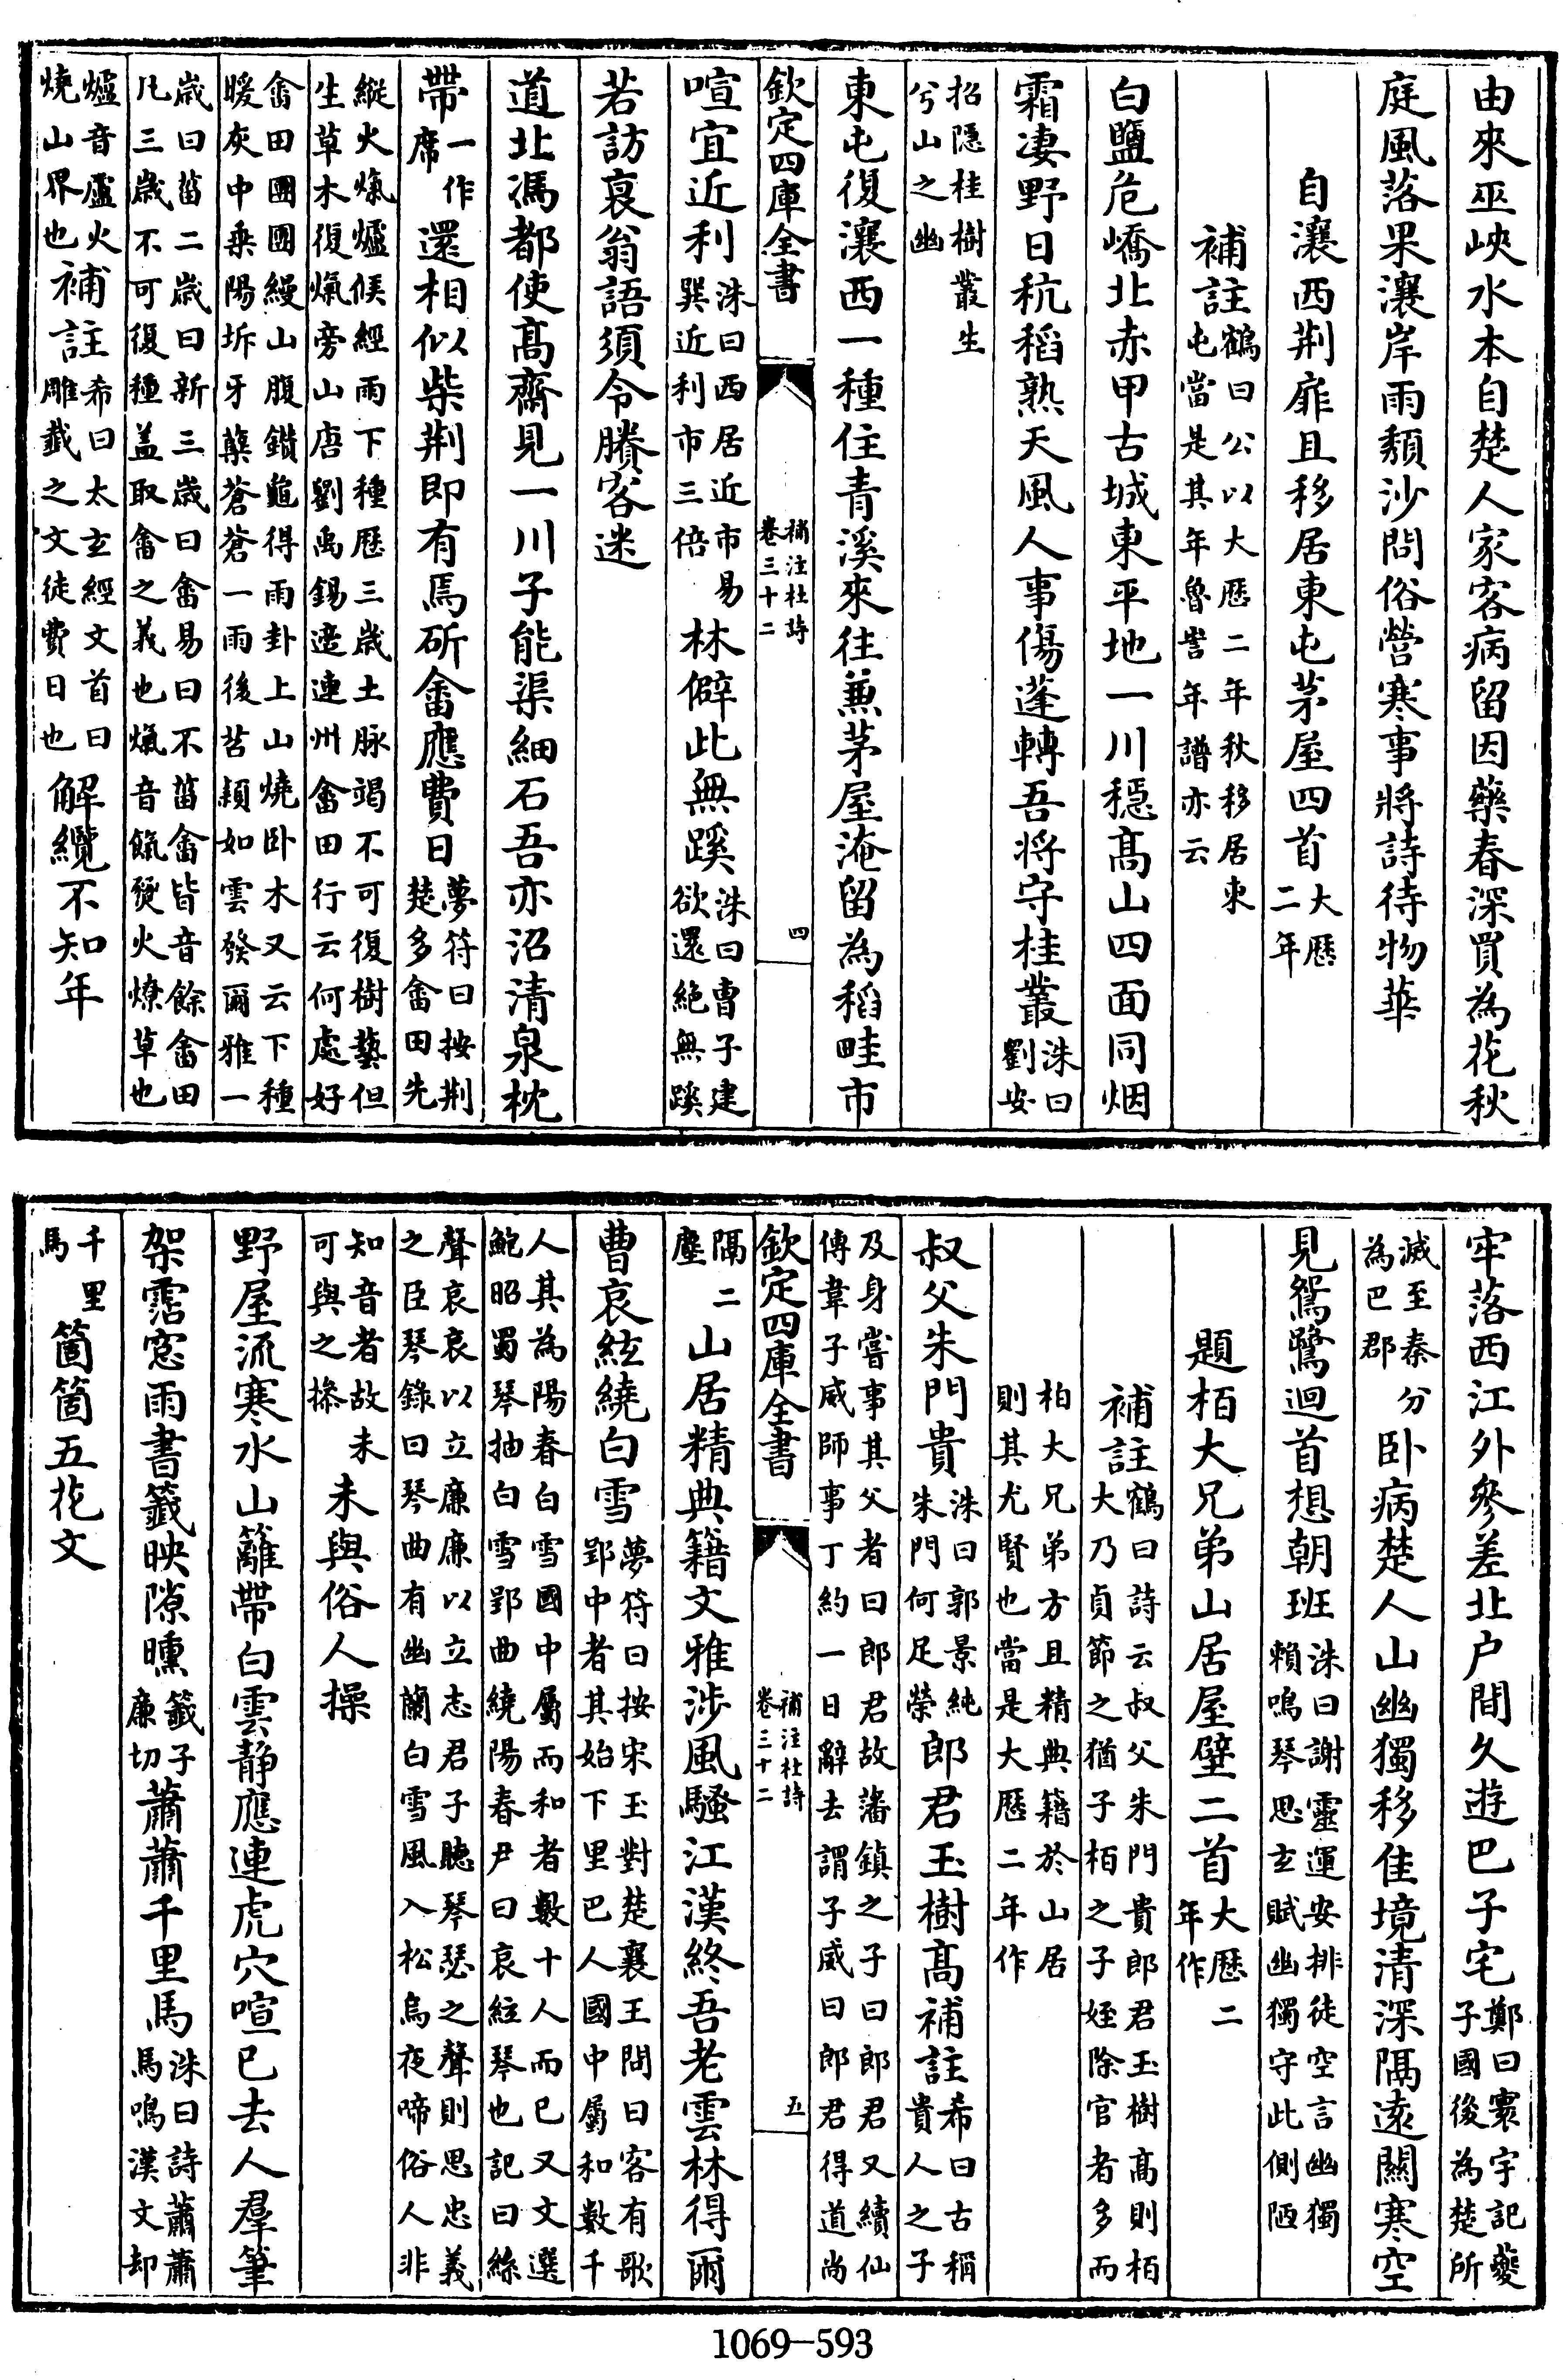 由來巫峽水本自楚人家客病留因藥春深買為花秋
庭風落果瀼岸雨頽沙問俗營寒事將詩待物華
自瀼西荆扉且移居東屯茅屋四首大厯二年
補註鶴曰公以大厯二年秋移居東屯當是其年魯訔年譜亦云
白鹽危嶠北赤甲古城東平地一川穩髙山四面同烟
霜凄野日秔稻熟天風人事傷蓬轉吾将守桂叢洙曰劉安
招隱桂樹叢生兮山之幽
東屯復瀼西一種住青溪來往兼茅屋淹留為稻畦市
欽定四庫全書 補注杜詩卷三十二 四
喧宜近利洙曰西居近市易巽近利市三倍林僻此無蹊洙曰曹子建欲還絶無蹊
若訪衰翁語須令賸客迷
道北馮都使髙齋見一川子能渠細石吾亦沼清泉枕
帶一作席還相似柴荆即有焉斫畬應費日夢符曰按荆楚多畬田先
縱火熂爐候經雨下種歴三歳土脉竭不可復樹藝但生草木復熂旁山唐劉禹錫適連州畬田行云何處好
畬田團團縵山腹鑽龜得雨卦上山燒卧木又云下種暖灰中乘陽坼牙蘖蒼蒼一雨後苕穎如雲發爾雅一
歳曰菑二歳曰新三歳曰畬易曰不菑畬皆音餘畬田凡三歳不可復種盖取畬之義也熂音餼爇火燎草也
爐音盧火燒山界也補註希曰太玄經文首曰雕韱之文徒費日也解纜不知年
牢落西江外參差北户間久遊巴子宅鄭曰寰宇記夔子國後為楚所
滅至秦分為巴郡卧病楚人山幽獨移佳境清深隔遠關寒空
見鴛鷺迴首想朝班洙曰謝靈運安排徒空言幽獨賴鳴琴思玄賦幽獨守此側陋
題栢大兄弟山居屋壁二首大厯二年作
補註鶴曰詩云叔父朱門貴郎君玉樹髙則栢大乃貞節之猶子栢之子姪除官者多而
柏大兄弟方且精典籍於山居則其尤賢也當是大厯二年作
叔父朱門貴洙曰郭景純朱門何足榮郎君玉樹髙補註希曰古稱貴人之子
及身嘗事其父者曰郎君故藩鎮之子曰郎君又續仙傳韋子威師事丁約一日辭去謂子威曰郎君得道尚
欽定四庫全書 補注杜詩卷三十二 五
隔二塵山居精典籍文雅涉風騷江漢終吾老雲林得爾
曹哀絃繞白雪夢符曰按宋玉對楚襄王問曰客有歌郢中者其始下里巴人國中屬和數千
人其為陽春白雪國中屬而和者數十人而已又文選鮑昭蜀琴抽白雪郢曲繞陽春尹曰哀絃琴也記曰絲
聲哀哀以立亷亷以立志君子聽琴瑟之聲則思忠義之臣琴錄曰琴曲有幽蘭白雪風入松烏夜啼俗人非
知音者故未可與之操未與俗人操
野屋流寒水山籬帶白雲靜應連虎穴喧已去人羣筆
架霑窓雨書籤映隙曛籤子亷切蕭蕭千里馬洙曰詩蕭蕭馬鳴漢文却
千里馬箇箇五花文
1069-593